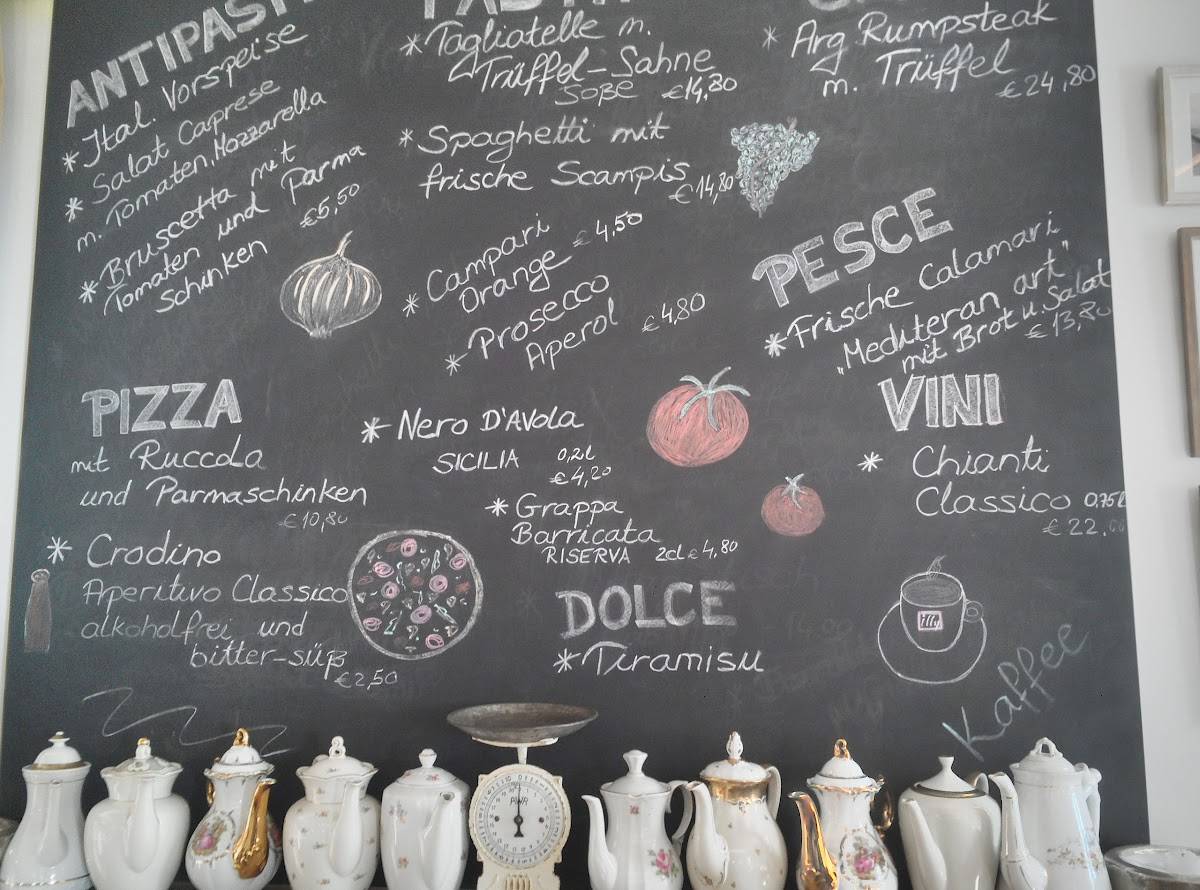 ANTIPASTI
* Ital. Vorspeise
* Salat Caprese
m. Tomaten, Mozzarella
* Bruscetta mit
Tomaten und Parma
Schinken €5,50
* Tagliatelle m.
Trüffel-Sahne
Soße €14,80
* Spaghetti mit
frische Scampis
€14,80
* Campari
Orange €4,50
* Prosecco
Aperol €4,80
* Arg Rumpsteak
m. Trüffel
€24,80
PESCE
* Frische Calamari
„Mediteran art"
mit Brot u. Salat
€13,80
PIZZA
mit Ruccola
und Parmaschinken
€10,80
* Crodino
Aperitivo Classico
alkoholfrei und
bitter-süß
€2,50
* Nero D'AVOLA
SICILIA 0,2l
€4,20
* Grappa
Barricata
RISERVA 2cl €4,80
DOLCE
* Tiramisu
VINI
* Chianti
Classico 0,75l
€22,00
illy
Kaffee